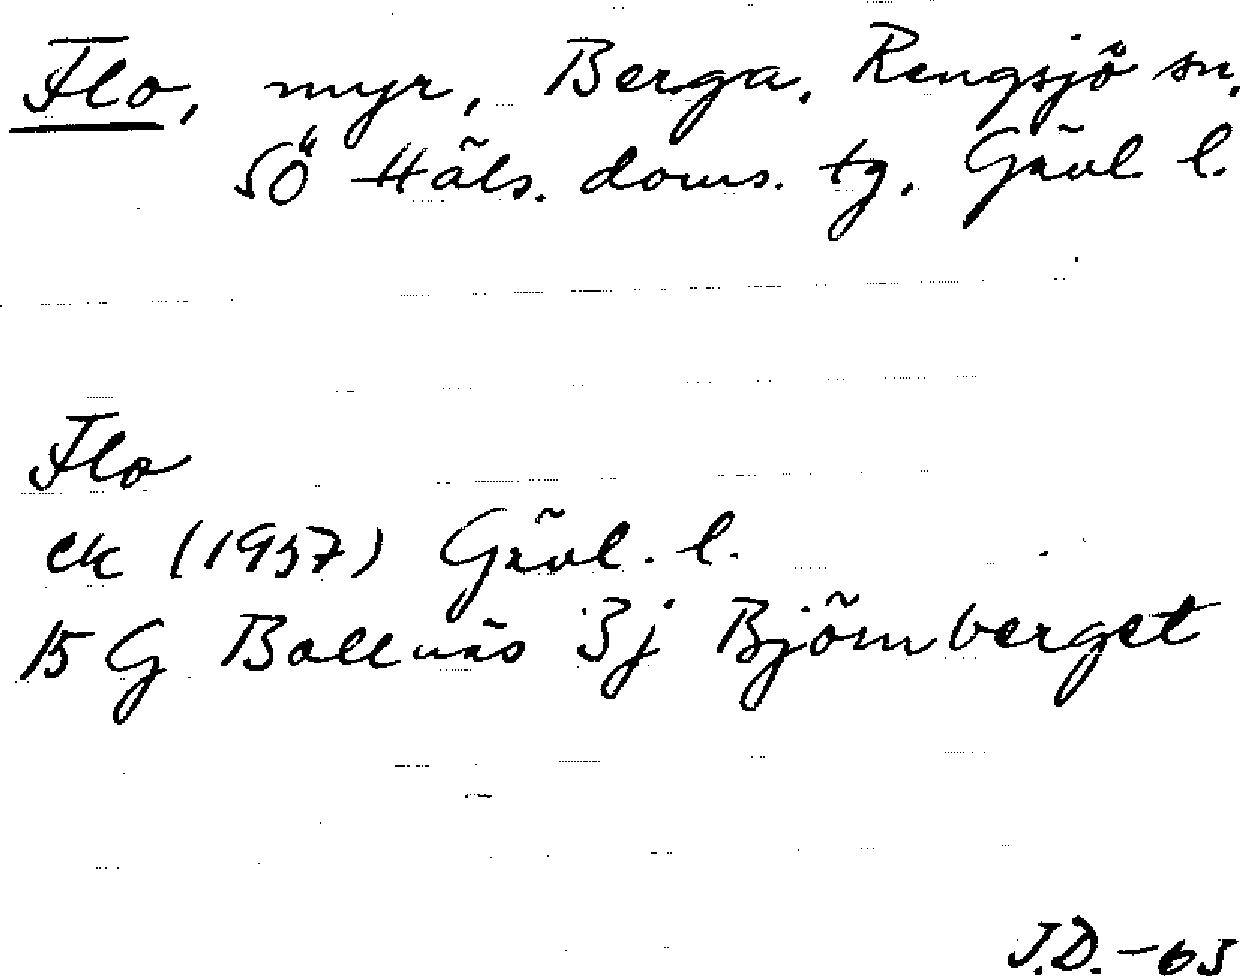 Flo, myr, Berga, Rengsjö sn,
SÖ Häls. doms. tg. Gävl l.
Flo
ek (1957) Gävl. l.
15 G Bollnäs 3j Björnberget
J.D.-65